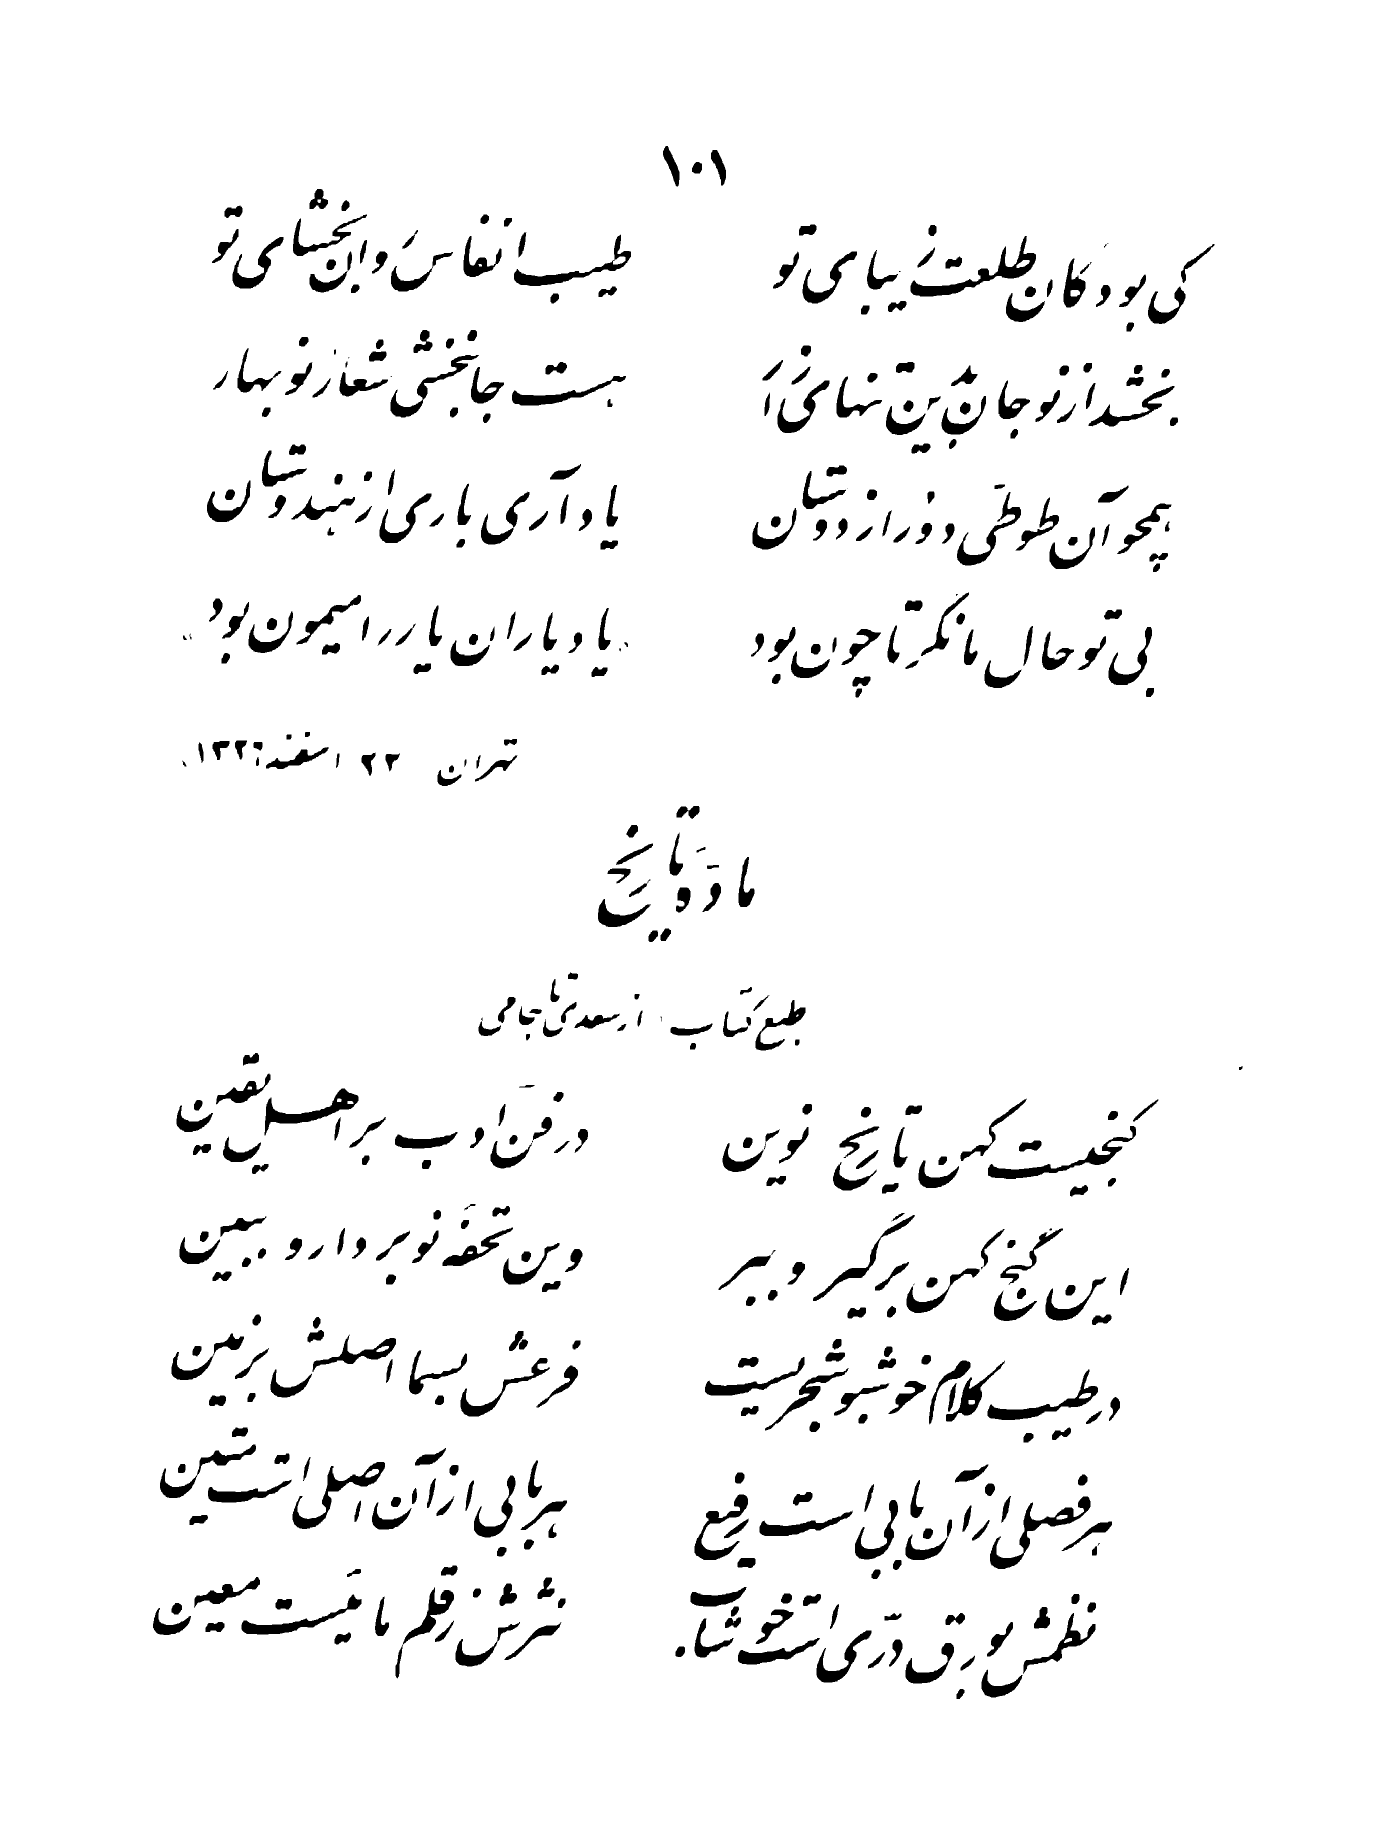 ۱۰۱
کی بود کان طلعت زیبای تو طیب انفاس روان بخشای تو
بخشد از نو جان بدین تنهای زار هست جانبخشی شعار نوبهار
همچو آن طوطی دور از دوستان یاد آری باری از هندوستان
بی تو حال ما نگر تا چون بود «یاد یاران یار را میمون بود»
تهران ۲۲ اسفند ۱۳۲۶
مادّه تاریخ
طبع کتاب از سعدی تا جامی
گنجیست کهن تاریخ نوین در فنّ ادب بر اهل یقین
این گنج کهن برگیر و ببر وین تحفه نو بردار و ببین
در طیب کلام خوشبو شجریست فرعش بسما اصلش بزمین
هر فصلی از آن بابی است رفیع هر بابی از آن اصلی است متین
نظمش بورق درّی است خوشاب نثرش ز قلم مائیست معین